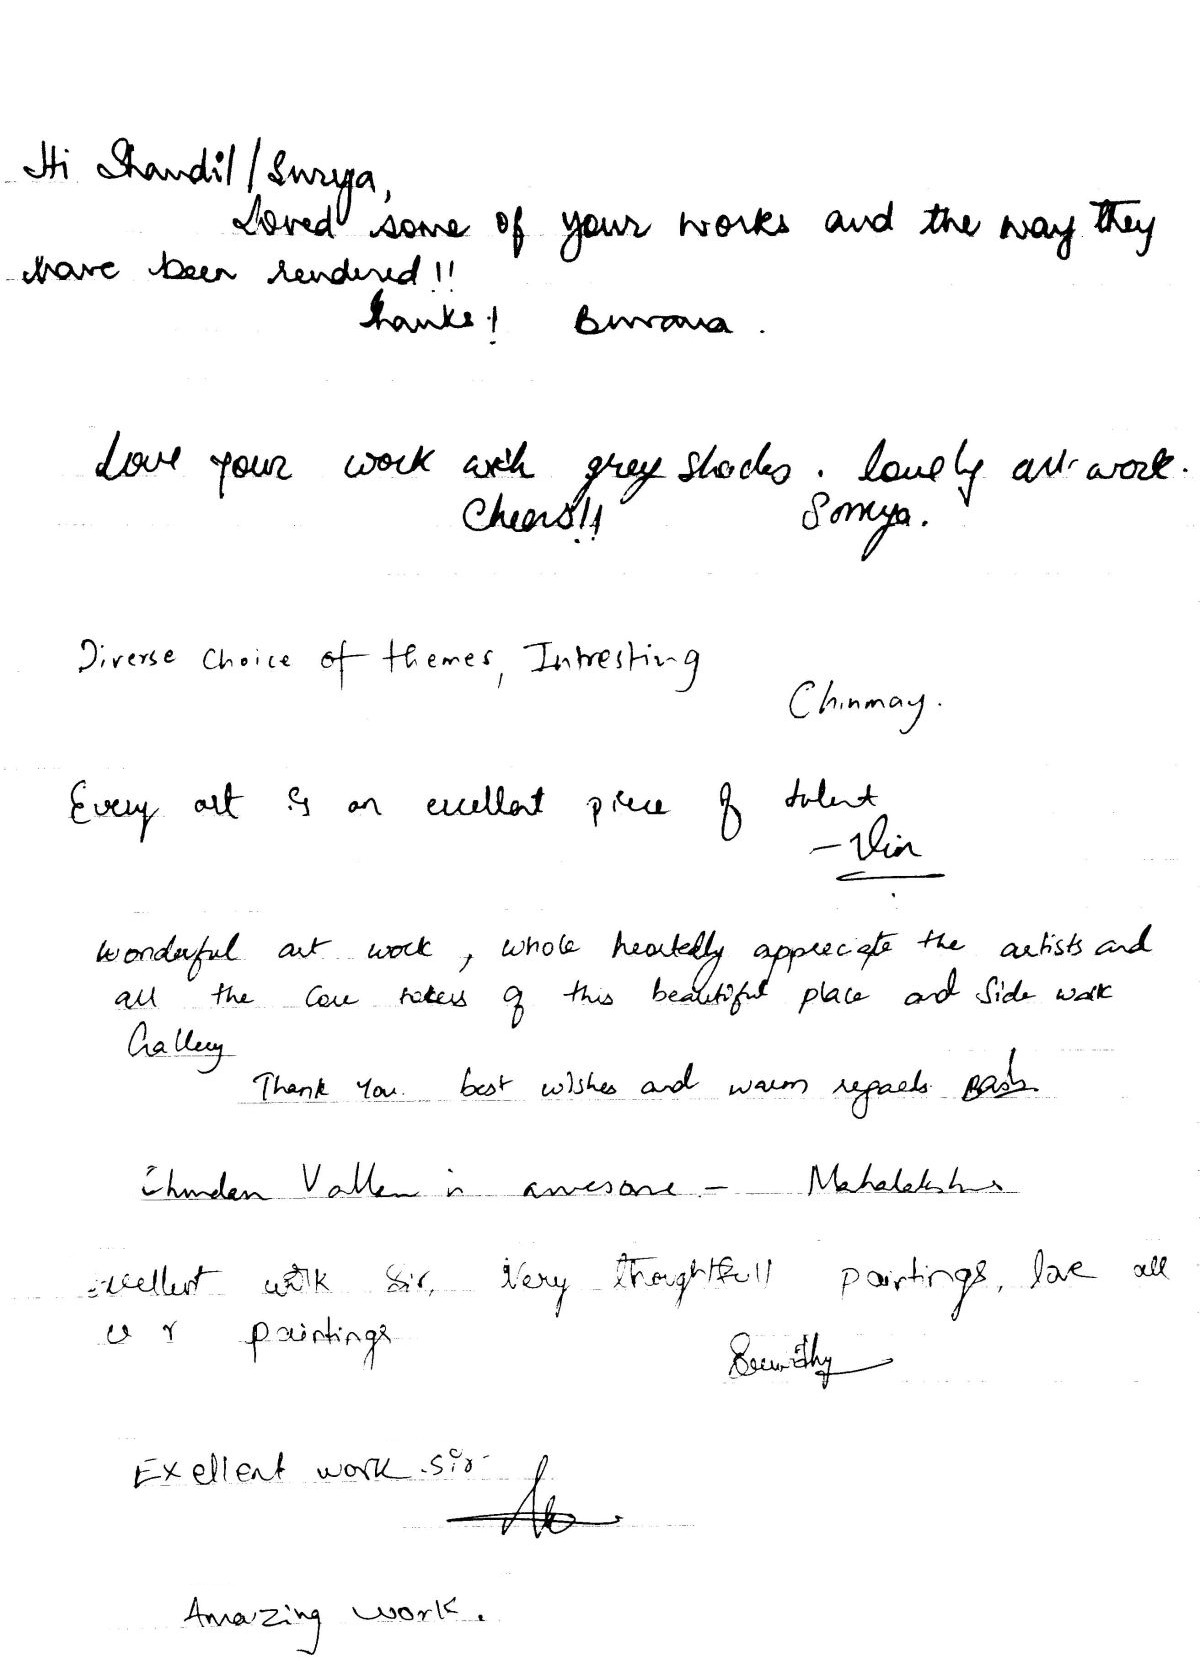 Hi Shandil/Surya,
Loved some of your works and the way they
have been rendered!!
Thanks!
Love your work with grey shades. lovely art work.
Cheers!! Somya.
Diverse choice of themes, Intresting
Chinmay.
Every art is an excellent piece of talent
wonderful art work, whole heartedly appreciate the artists and
all the care takers of this beautiful place and Side walk
Gallery
Thank You. best wishes and warm regards
is awesome -
Excellent work Sir, Very thoughtfull paintings, love all
u r paintings
Exellent work sir
Amazing work.